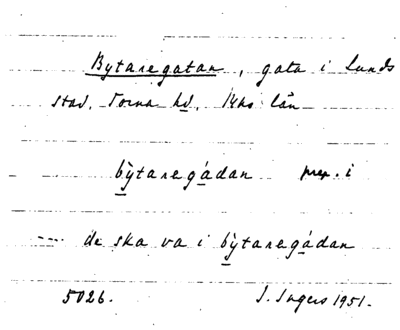 Bytaregatan, gata i Lunds
stad, Torna hd, Mhs län
bỳtaregádan prep. i
--- de ska va i bỳtaregádan
5026. I. Ingers 1951.